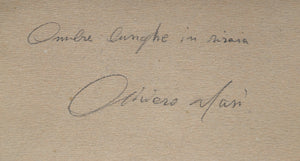 Ombre lunghe in risaia
Oliviero Masi